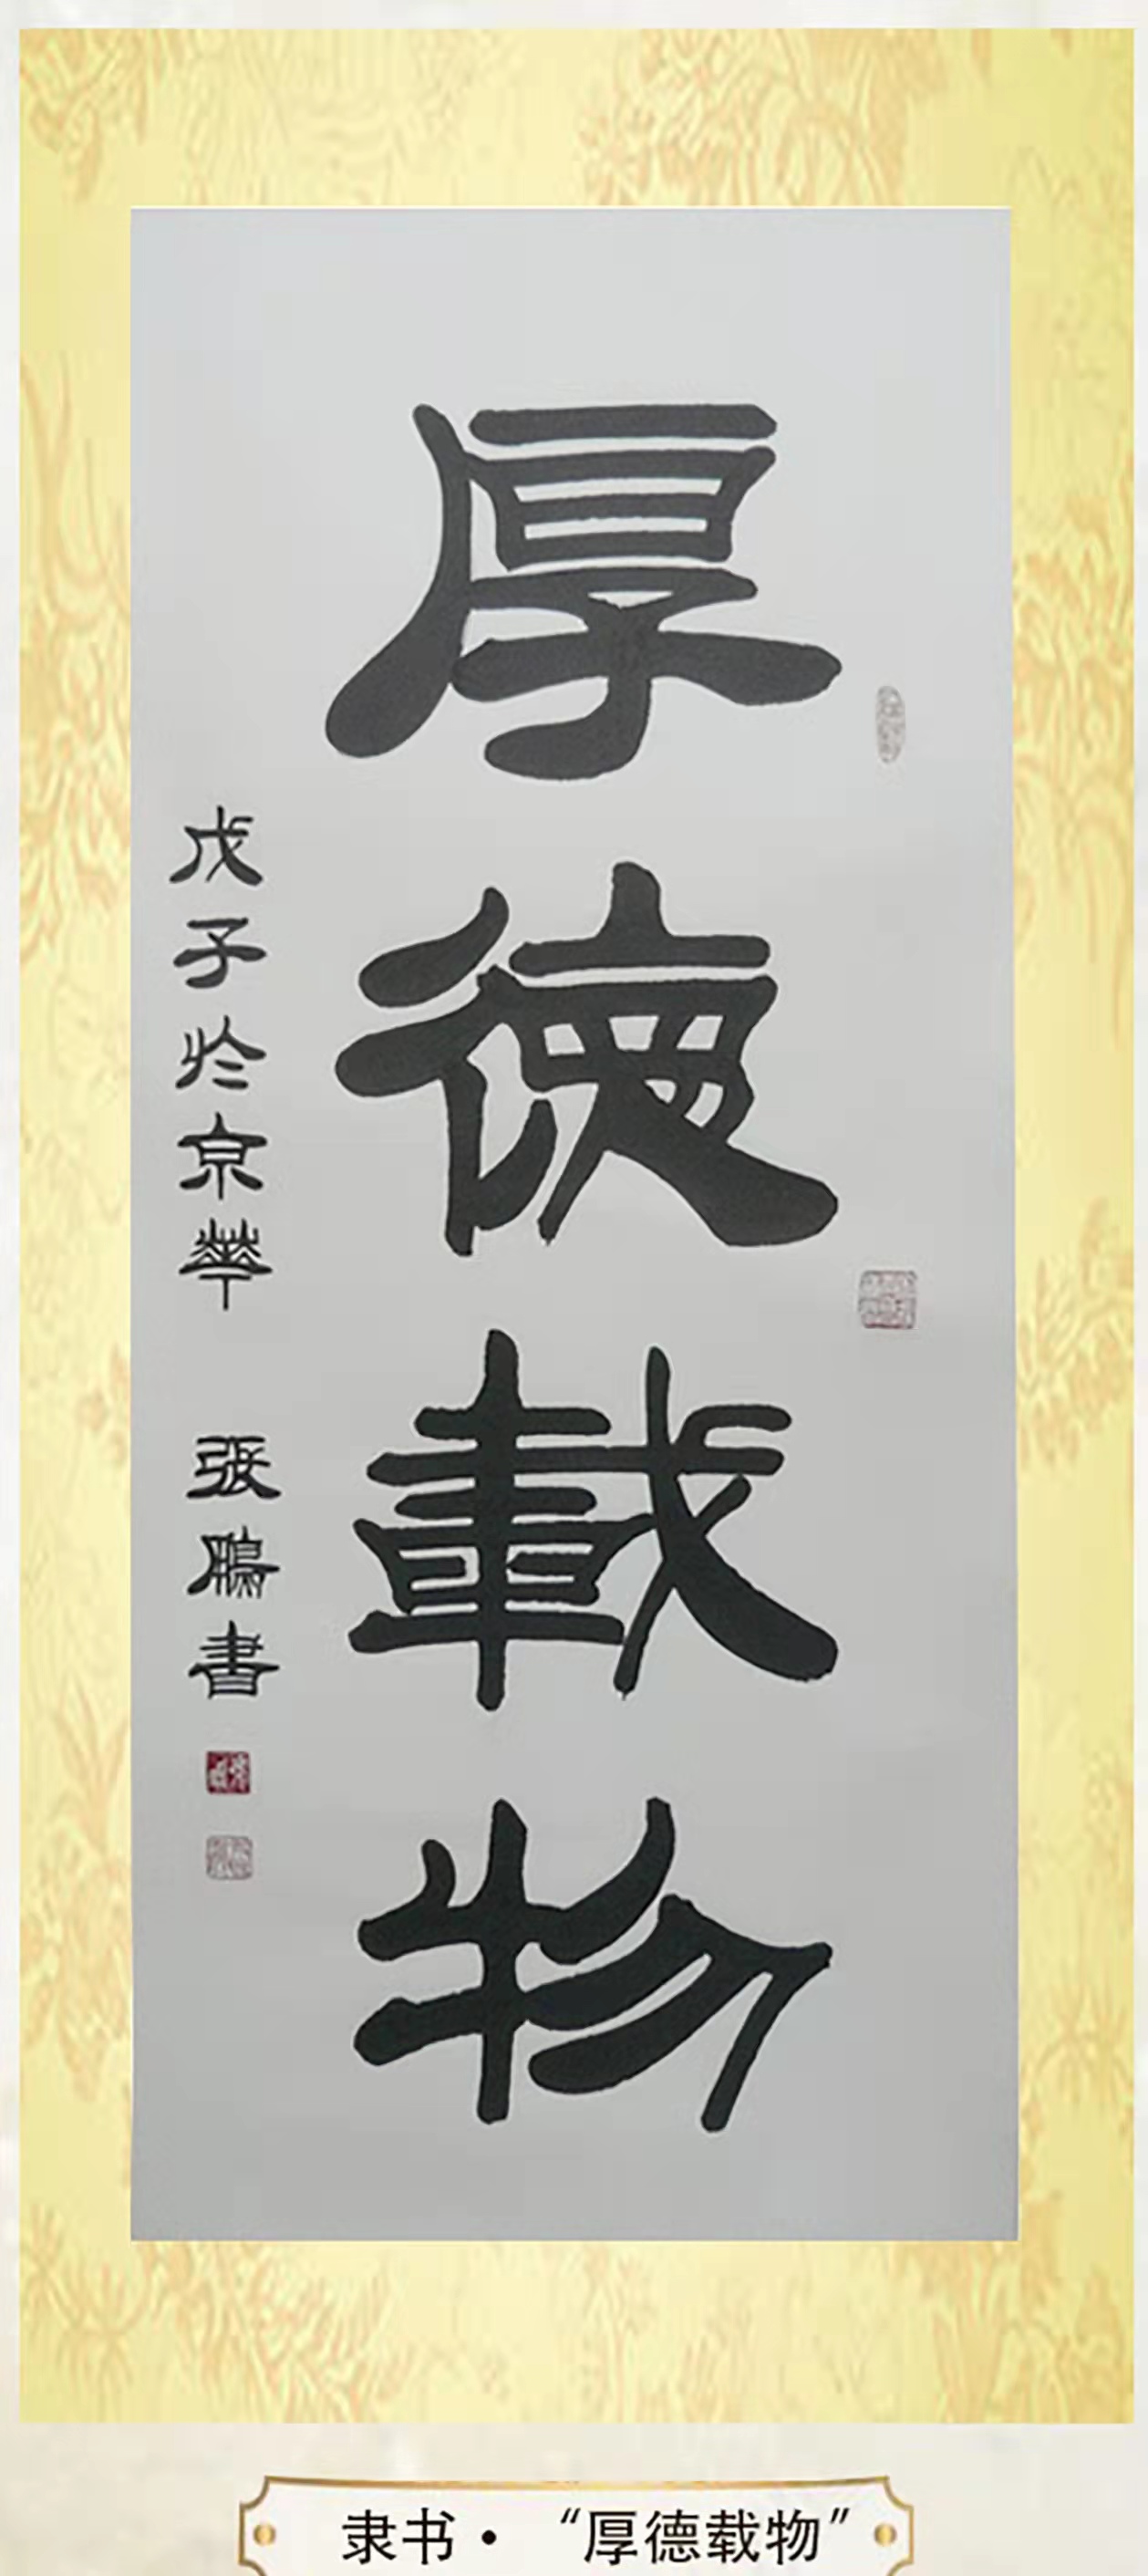 厚德載物
戊子於京華 張鵬書
隶书·“厚德载物”